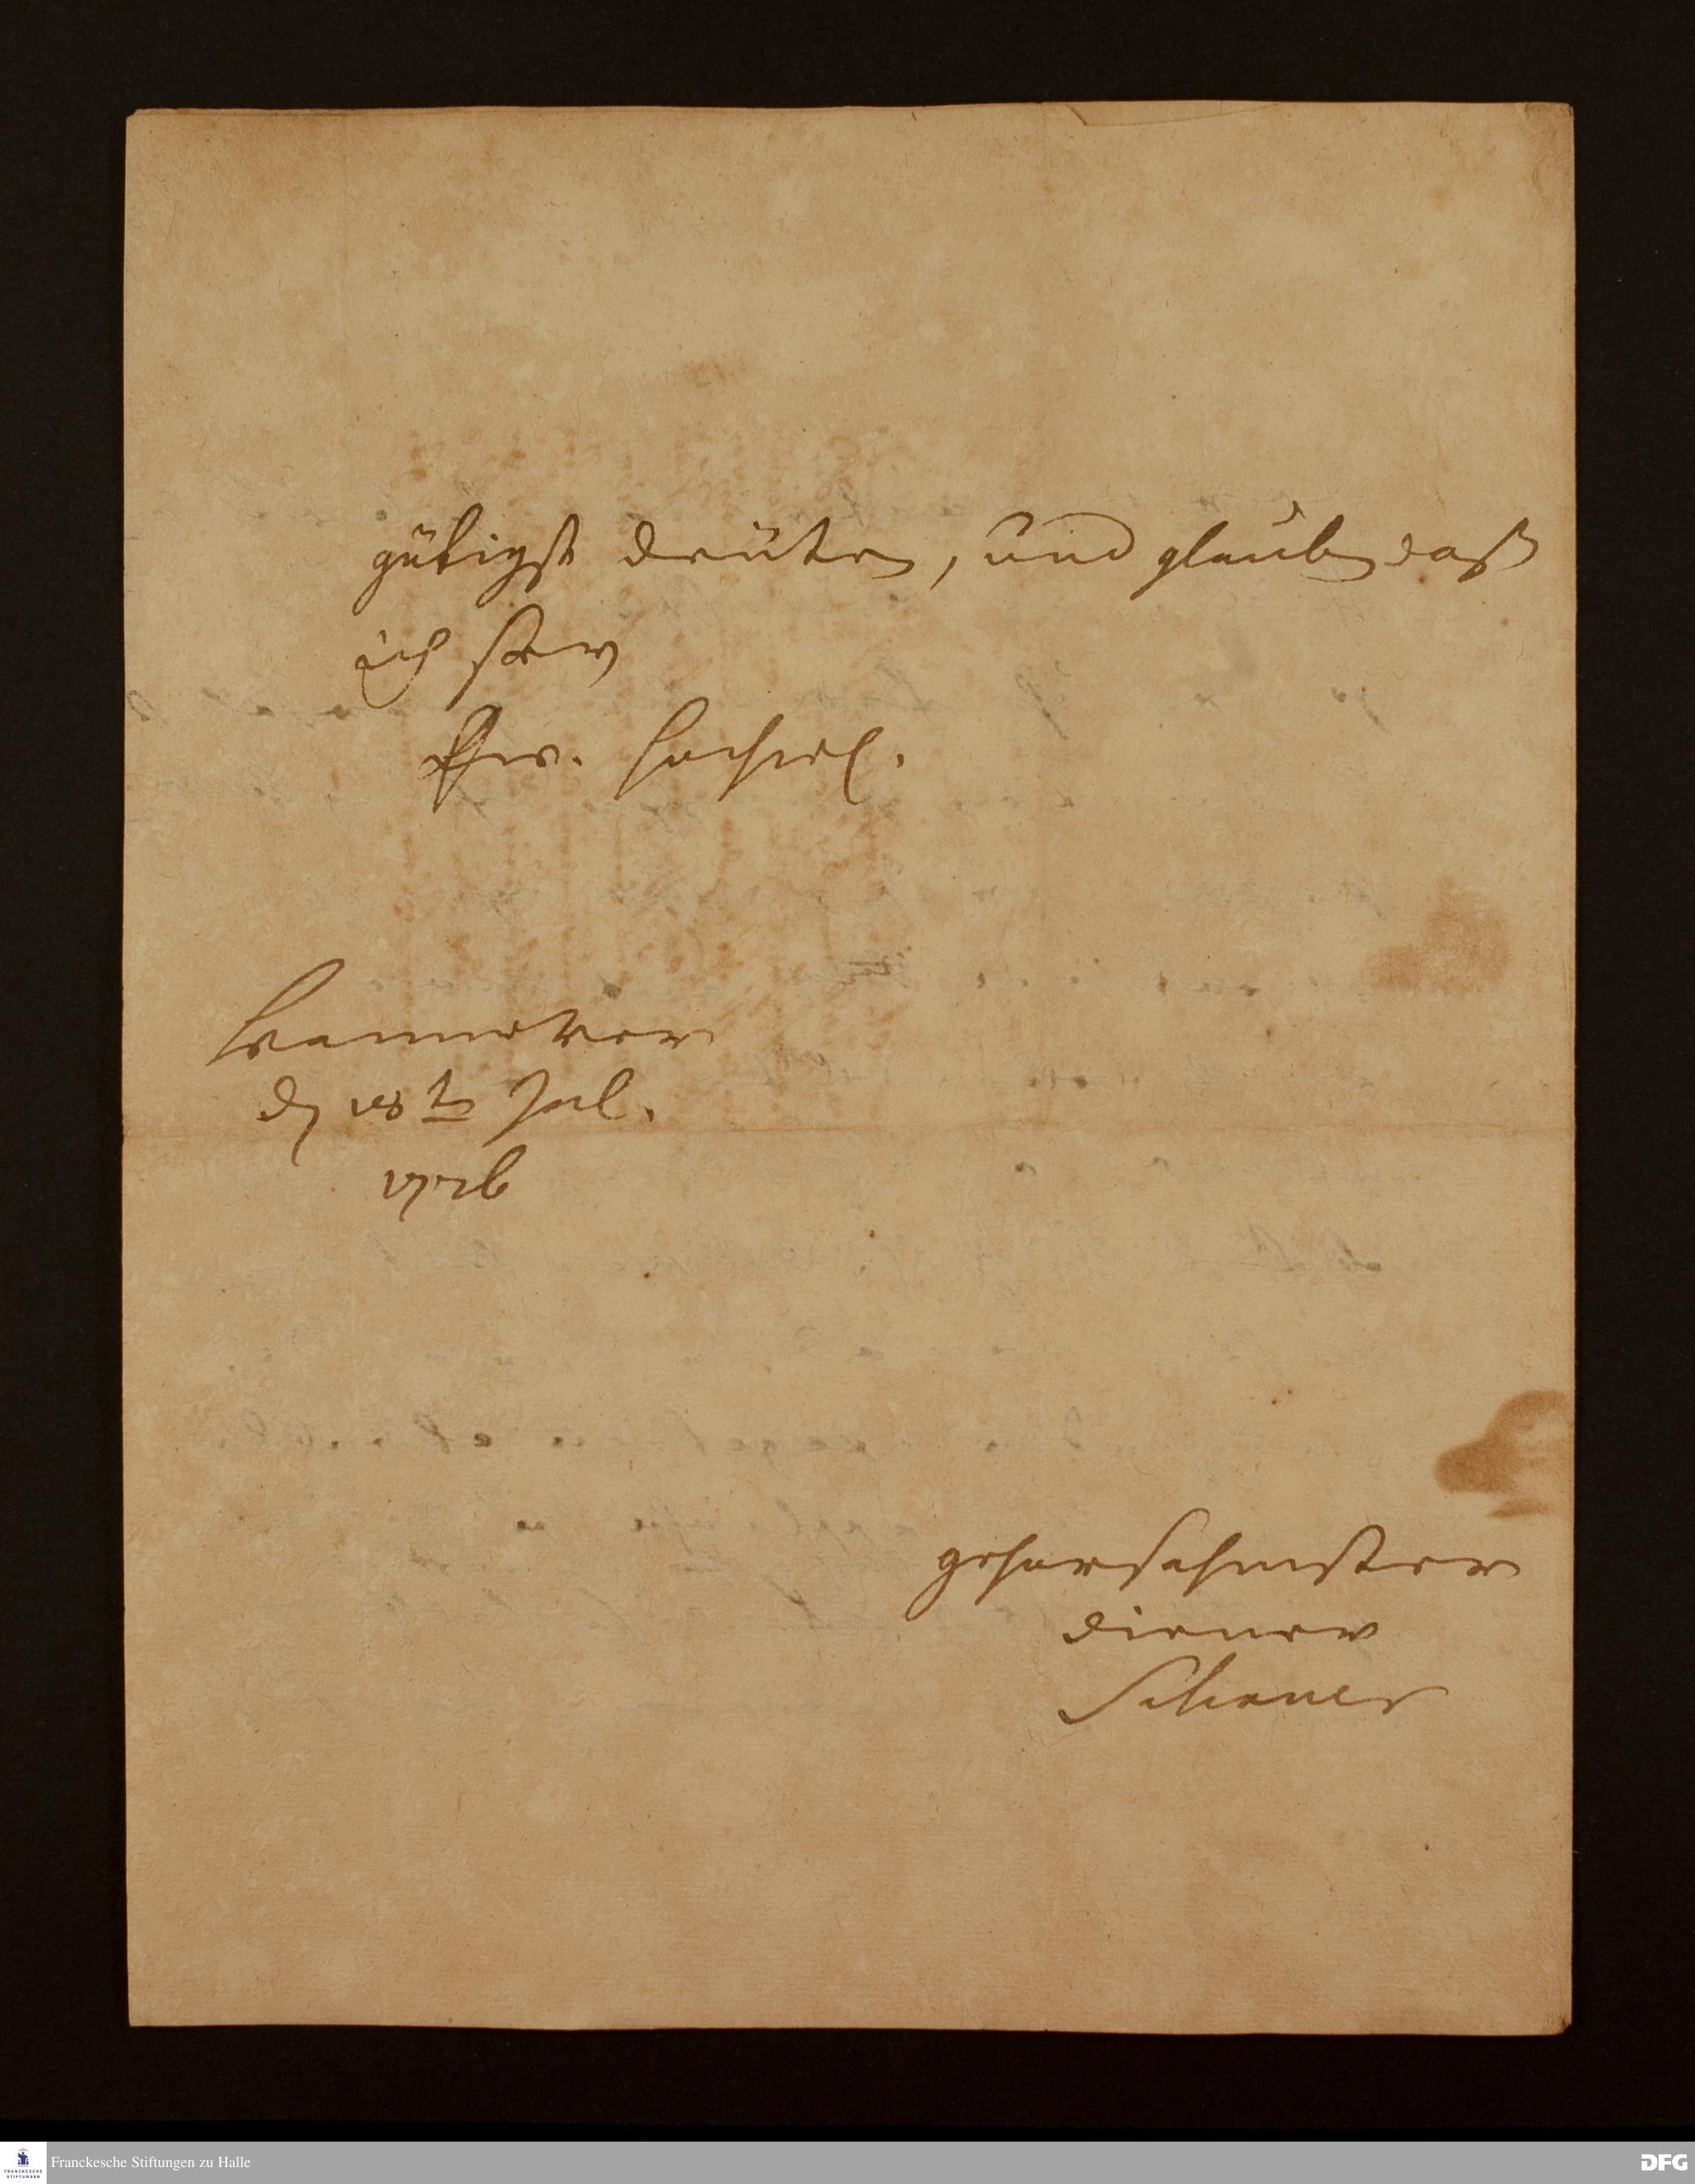 gütigst deüten, und glauben daß
ich sey
Ew. Hochw.
Hannover
d 18ten Jul.
1726
gehorsahmster
diener
Franckesche Stiftungen zu Halle
FRANCKESCHE
STIFTUNGEN
DFG